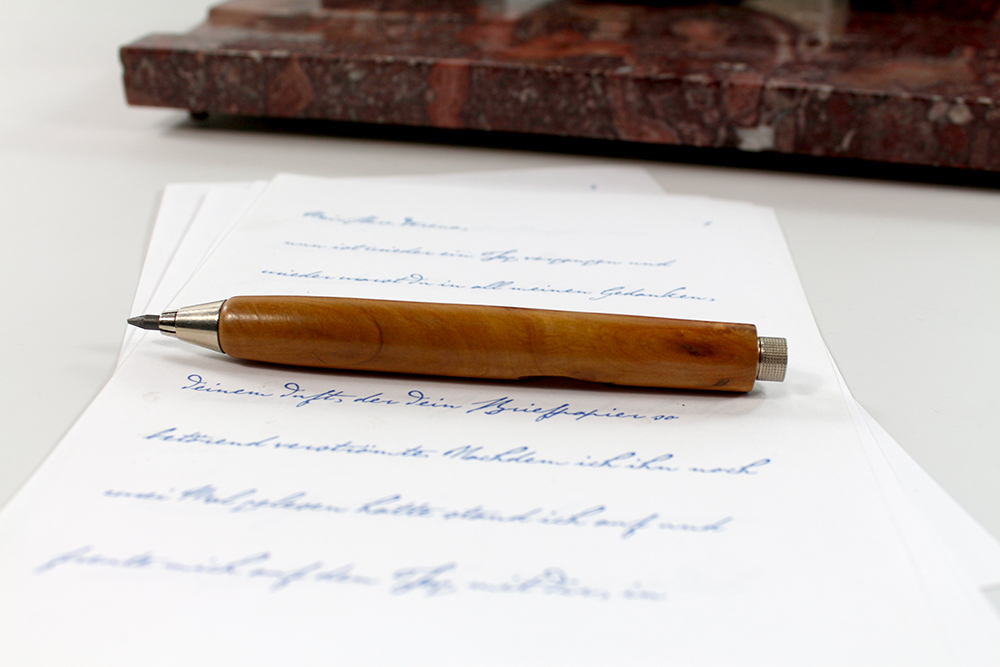 nun ist wieder ein Tag vergangen und
wieder warst Du in all meinen Gedanken,
deinem Duft, der dein Briefpapier so
betörend verströmte. Nachdem ich ihn noch
zwei Mal gelesen hatte stand ich auf und
freute mich auf den Tag, mit Dir, in